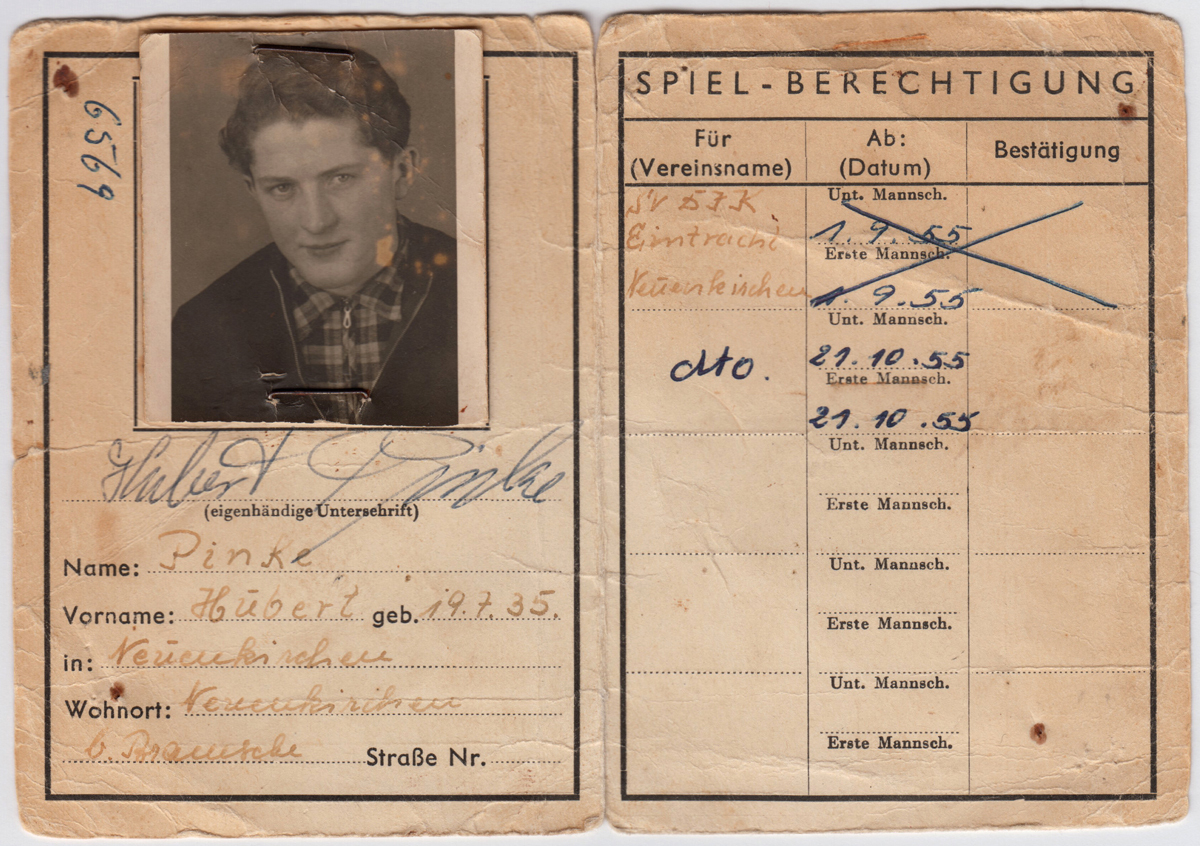 6569
Hubert Pinke
(eigenhändige Unterschrift)
Name: Pinke
Vorname: Hubert geb. 19.7.35.
in: Neuenkirchen
Wohnort: Neuenkirchen
b. Bramsche Straße Nr.
SPIEL-BERECHTIGUNG
Für (Vereinsname)
Ab: (Datum)
Bestätigung
SV DJK
Eintracht
Neuenkirchen
Unt. Mannsch.
1. 9. 55
Erste Mannsch.
1. 9. 55
dto.
Unt. Mannsch.
21. 10. 55
Erste Mannsch.
21. 10. 55
Unt. Mannsch.
Erste Mannsch.
Unt. Mannsch.
Erste Mannsch.
Unt. Mannsch.
Erste Mannsch.